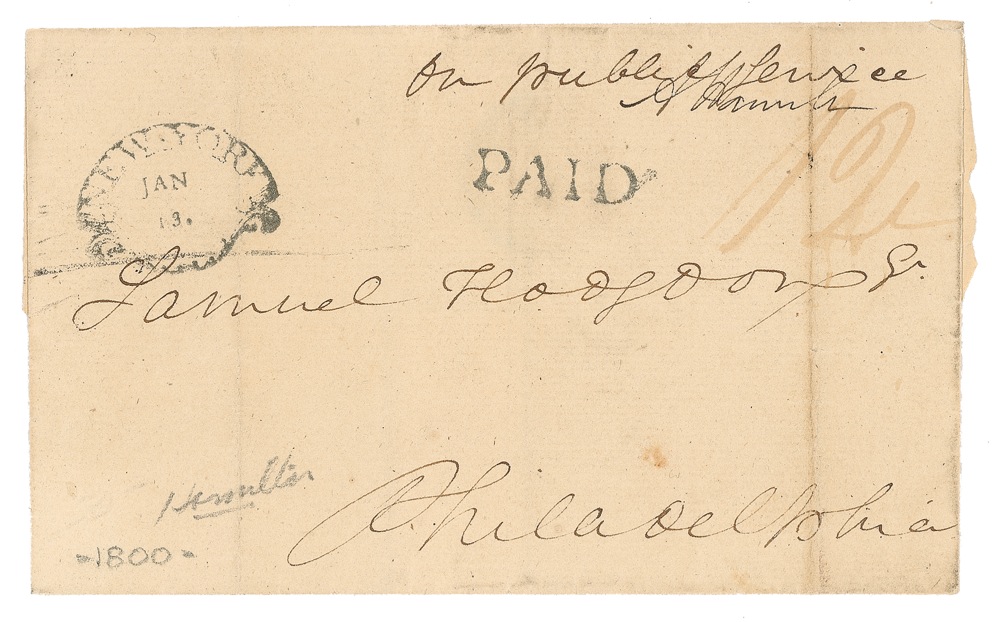 on public Service
A Hamilt
NEW-YORK
JAN
13.
PAID
12
Samuel Hodgdon Esqr.
Hamilton
Philadelphia
-1800-